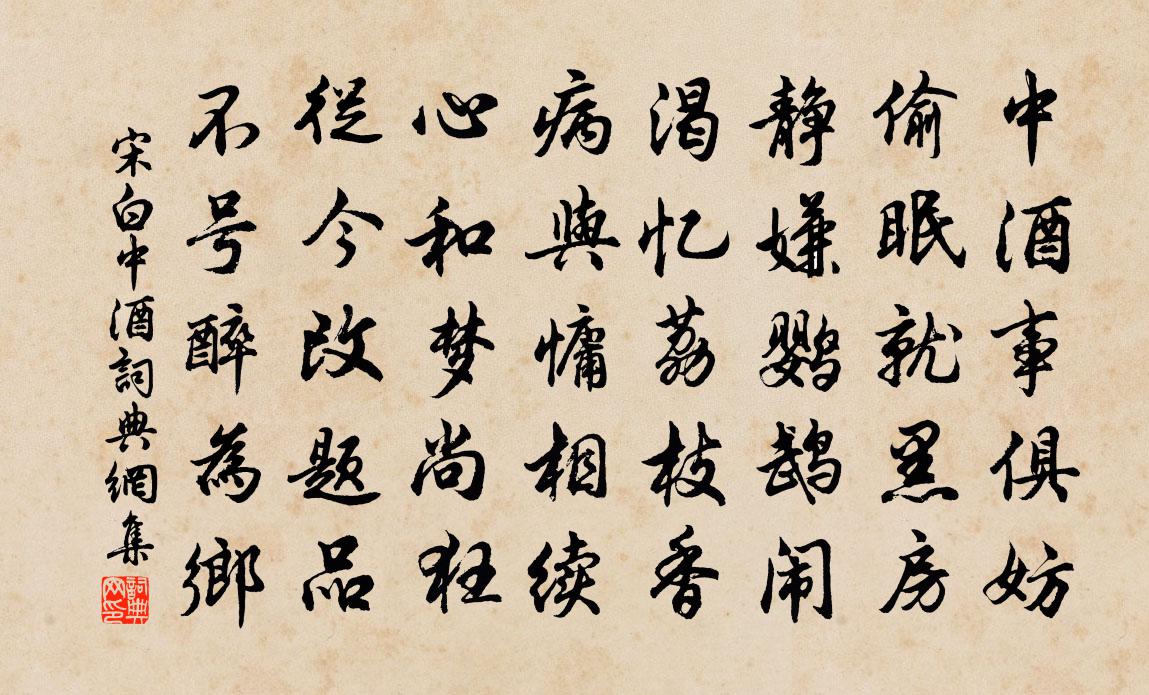 中酒事俱妨
偷眠就黑房
静嫌鹦鹉闹
渴忆荔枝香
病與慵相续
心和梦尚狂
從今改题品
不号醉為鄉
宋白中酒詞典網集
詞典网印